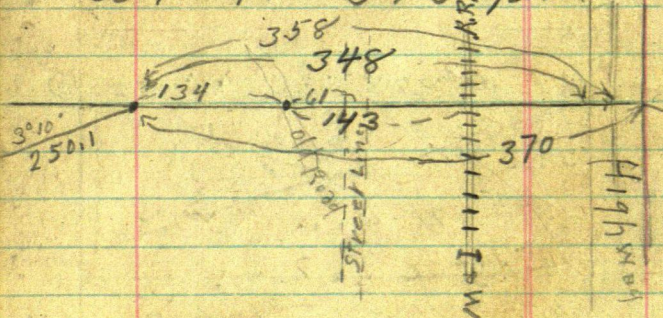 R.R.
358
348
134 61
143
3°10'
250.1
370
Old Road
Street Line
Highway